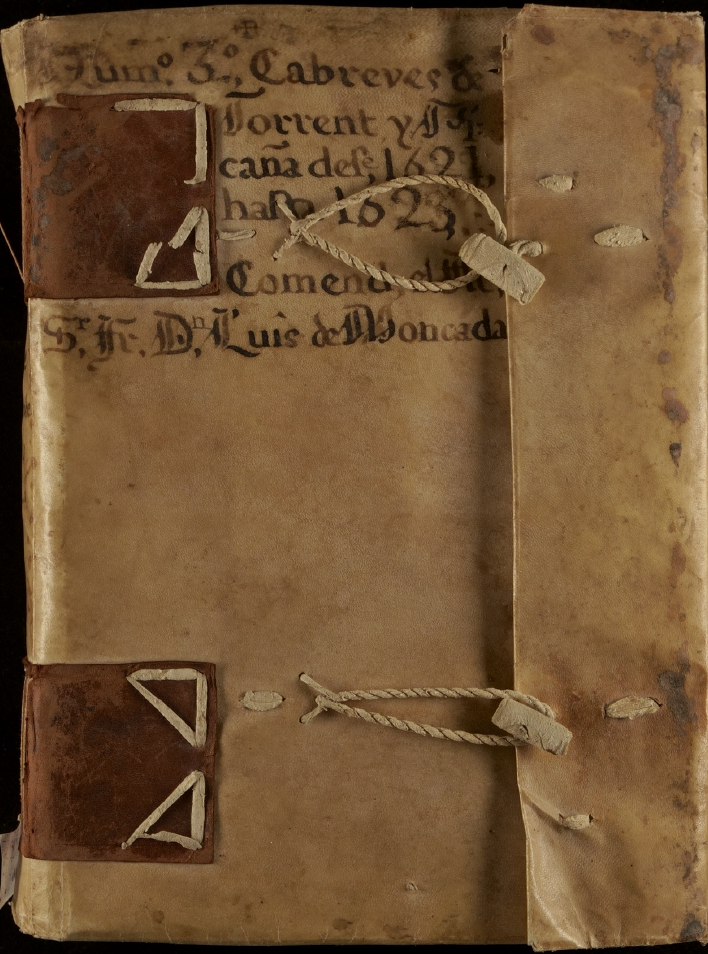 Num.º 3.º, Cabreves de
Torrent y Pi
caña desᵉ, 1621,
hasta 1623,
Comend, el
Sʳ. Fr. Dⁿ. Luis de Moncada